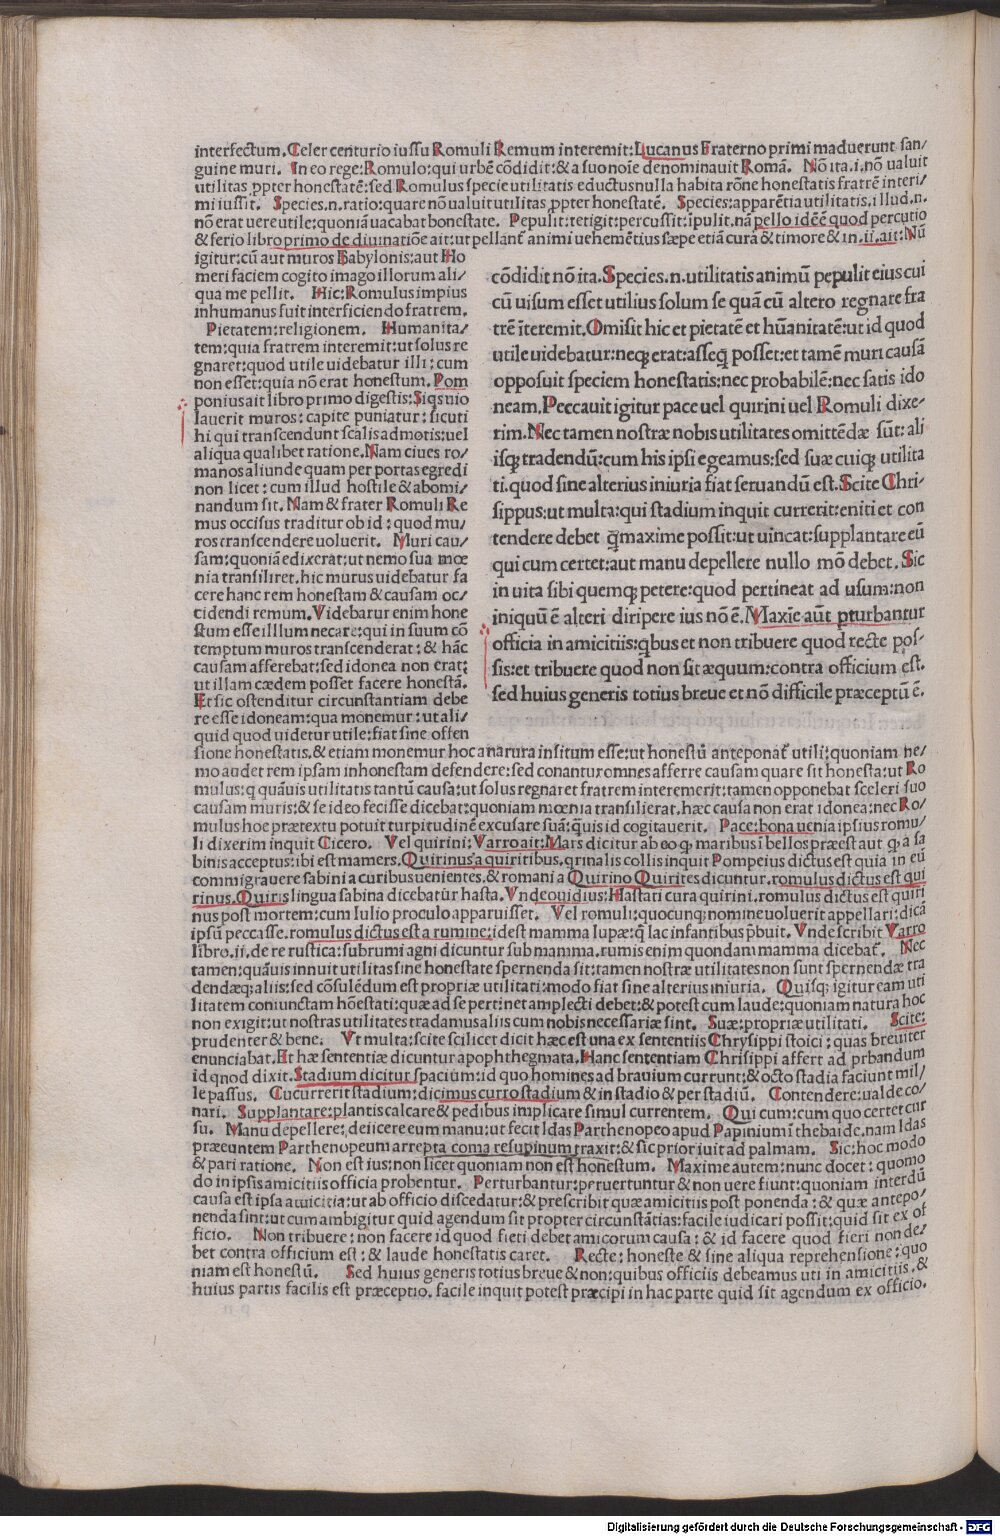 interfectum. Celer centurio iussu Romuli Remum interemit: Lucanus Fraterno primi maduerunt san/
guine muri. In eo rege: Romulo: qui urbē cōdidit: & a suo noīe denominauit Romā. Nō ita .i. nō ualuit
utilitas ꝓpter honestatē: sed Romulus specie utilitatis eductus nulla habita rōne honestatis fratrē interi/
mi iussit. Species .n. ratio: quare nō ualuit utilitas ꝓpter honestatē. Species: apparētia utilitatis. illud .n.
nō erat uere utile: quoniā uacabat honestate. Pepulit: tetigit: percussit: īpulit. nā pello idē ē quod percutio
& ferio libro primo de diuinatiōe ait: ut pellant̄ animi uehemētius sæpe etiā cura & timore & in .ii. ait: Nū
igitur: cū aut muros Babylonis: aut Ho
meri faciem cogito imago illorum ali/
qua me pellit. Hic: Romulus impius
inhumanus fuit interficiendo fratrem.
Pietatem: religionem. Humanita/
tem: quia fratrem interemit: ut solus re
gnaret: quod utile uidebatur illi: cum
non esset: quia nō erat honestum. Pom
ponius ait libro primo digestis: Siqs uio
lauerit muros: capite puniatur: sicuti
hi qui transcendunt scalis admotis: uel
aliqua qualibet ratione. Nam ciues ro/
manos aliunde quam per portas egredi
non licet: cum illud hostile & abomi/
nandum sit. Nam & frater Romuli Re
mus occisus traditur ob id: quod mu/
ros transcendere uoluerit. Muri cau/
sam: quoniā edixerat: ut nemo sua mœ
nia transiliret. hic murus uidebatur fa
cere hanc rem honestam & causam oc/
cidendi remum. Videbatur enim hone
stum esse illlum necare: qui in suum cō
temptum muros transcenderat: & hāc
causam afferebat: sed idonea non erat:
ut illam cædem posset facere honestā.
Et sic ostenditur circunstantiam debe
re esse idoneam: qua monemur: ut ali/
quid quod uidetur utile: fiat sine offen
cōdidit nō ita. Species .n. utilitatis animū pepulit eius cui
cū uisum esset utilius solum se quā cū altero regnare fra
trē īteremit. Omisit hic et pietatē et hūanitatē: ut id quod
utile uidebatur: neqꝫ erat: asseqꝫ posset: et tamē muri causā
opposuit speciem honestatis: nec probabilē: nec satis ido
neam. Peccauit igitur pace uel quirini uel Romuli dixe/
rim. Nec tamen nostræ nobis utilitates omittēdæ sūt: ali
isqꝫ tradendū: cum his ipsi egeamus: sed suæ cuiqꝫ utilita
ti. quod sine alterius iniuria fiat seruandū est. Scite Chri/
sippus: ut multa: qui stadium inquit currerit: eniti et con
tendere debet q̄maxime possit: ut uincat: supplantare eū
qui cum certet: aut manu depellere nullo mō debet. Sic
in uita sibi quemqꝫ petere: quod pertineat ad usum: non
iniquū ē alteri diripere ius nō ē. Maxīe aūt ꝑturbantur
officia in amicitiis: qbus et non tribuere quod recte pos/
sis: et tribuere quod non sit æquum: contra officium est.
sed huius generis totius breue et nō difficile præceptū ē.
sione honestatis. & etiam monemur hoc a natura insitum esse: ut honestū anteponat̄ utili: quoniam ne/
mo audet rem ipsam inhonestam defendere: sed conantur omnes afferre causam quare sit honesta: ut Ro
mulus: q quāuis utilitatis tantū causa: ut solus regnaret fratrem interemerit: tamen opponebat sceleri suo
causam muris: & se ideo fecisse dicebat: quoniam mœnia transilierat. hæc causa non erat idonea: nec Ro/
mulus hoc prætextu potuit turpitudinē excusare suā: quis id cogitauerit. Pace: bona uenia ipsius romu/
li dixerim inquit Cicero. Vel quirini: Varro ait: Mars dicitur ab eo q maribus ī bellos præest aut q a sa
binis acceptus: ibi est mamers. Quirinus a quiritibus. qrinalis collis inquit Pompeius dictus est quia in eū
commigrauere sabini a curibus uenientes. & romani a Quirino Quirites dicuntur. romulus dictus est qui
rinus. Quiris lingua sabina dicebatur hasta. Vnde ouidius: Hastati cura quirini. romulus dictus est quiri
nus post mortem: cum Iulio proculo apparuisset. Vel romuli: quocunqꝫ nomine uoluerit appellari: dicā
ipsū peccasse. romulus dictus est a rumine: idest mamma lupæ: q̄ lac infantibus p̄buit. Vnde scribit Varro
libro .ii. de re rustica: subrumi agni dicuntur sub mamma. rumis enim quondam mamma dicebat̄. Nec
tamen: quāuis innuit utilitas sine honestate spernenda sit: tamen nostræ utilitates non sunt spernendæ tra
dendæqꝫ aliis: sed cōsulēdum est propriæ utilitati: modo fiat sine alterius iniuria. Quisqꝫ igitur eam uti
litatem coniunctam hōestati: quæ ad se pertinet amplecti debet: & potest cum laude: quoniam natura hoc
non exigit: ut nostras utilitates tradamus aliis cum nobis necessariæ sint. Suæ: propriæ utilitati. Scite:
prudenter & bene. Vt multa: scite scilicet dicit hæc est una ex sententiis Chrysippi stoici: quas breuiter
enunciabat. Et hæ sententiæ dicuntur apophthegmata. Hanc sententiam Chrisippi affert ad ꝓbandum
id quod dixit. Stadium dicitur spacium: id quo homines ad brauium currunt: & octo stadia faciunt mil/
le passus. Cucurrerit stadium: dicimus curro stadium & in stadio & per stadiū. Contendere: ualde co/
nari. Supplantare: plantis calcare & pedibus implicare simul currentem. Qui cum: cum quo certet cur
su. Manu depellere: deiicere eum manu: ut fecit Idas Parthenopeo apud Papinium ī thebaide. nam Idas
præeuntem Parthenopeum arrepta coma resupinum traxit: & sic prior iuit ad palmam. Sic: hoc modo
& pari ratione. Non est ius: non licet quoniam non est honestum. Maxime autem: nunc docet: quomo
do in ipsis amicitiis officia probentur. Perturbantur: peruertuntur & non uere fiunt: quoniam interdū
causa est ipsa amicitia: ut ab officio discedatur: & prescribit quæ amicitiis post ponenda: & quæ antepo/
nenda sint: ut cum ambigitur quid agendum sit propter circunstātias: facile iudicari possit: quid sit ex of
ficio. Non tribuere: non facere id quod fieri debet amicorum causa: & id facere quod fieri non de/
bet contra officium est: & laude honestatis caret. Recte: honeste & sine aliqua reprehensione: quo
niam est honestū. Sed huius generis totius breue & non: quibus officiis debeamus uti in amicitiis. &
huius partis facilis est præceptio. facile inquit potest præcipi in hac parte quid sit agendum ex officio.
Digitalisierung gefördert durch die Deutsche Forschungsgemeinschaft - DFG